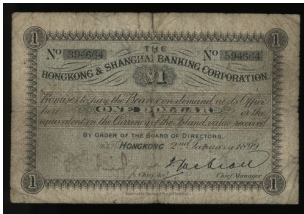 1 THE 1
No 594664 No 594664
HONGKONG & SHANGHAI BANKING CORPORATION
$1
Promises to pay the Bearer on demand at its Office
here ONE DOLLAR or the
equivalent in the Currency of the Island, value received
BY ORDER OF THE BOARD OF DIRECTORS.
HONGKONG 2nd January 1899
Chief Manager
1 1